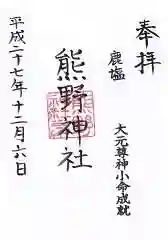 奉拝
鹿塩
大元尊神小命成就
熊野神社
平成二十七年十二月六日